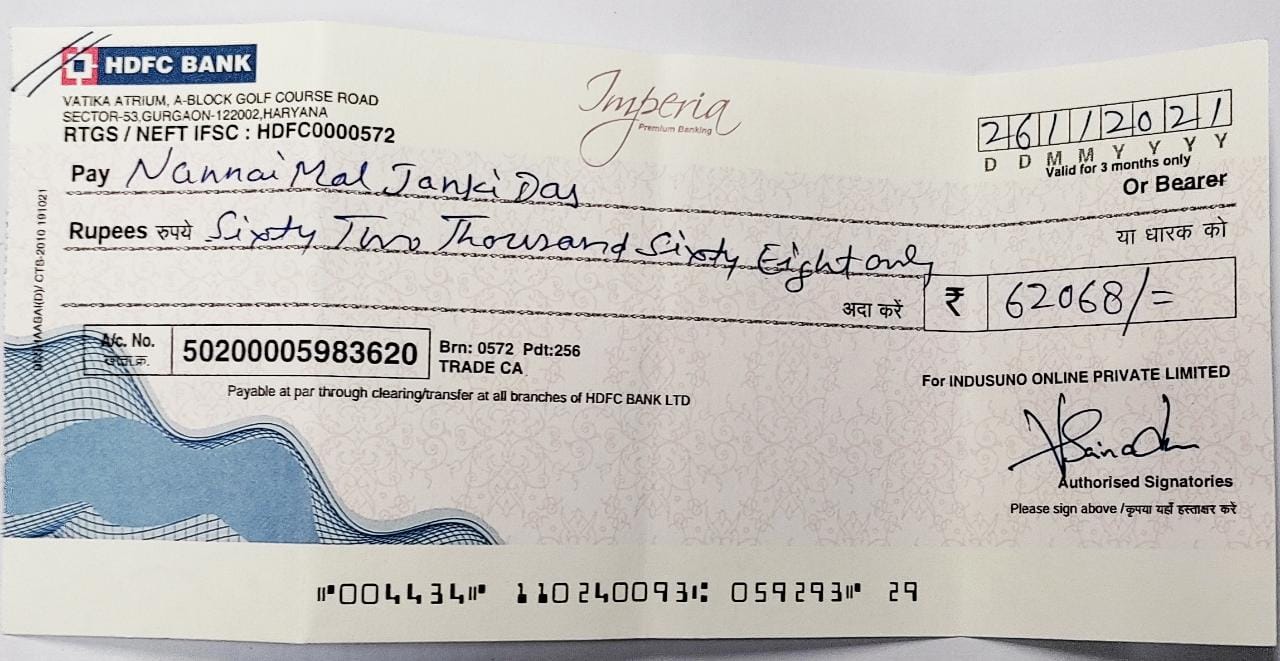 HDFC BANK
VATIKA ATRIUM, A-BLOCK GOLF COURSE ROAD
SECTOR-53,GURGAON-122002,HARYANA
RTGS / NEFT IFSC : HDFC0000572
Imperia
Premium Banking
26112021
D D M M Y Y Y Y
Valid for 3 months only
Pay Nannai Mal Janki Das
Or Bearer
Rupees रुपये Sixty Two Thousand Sixty Eight only
या धारक को
अदा करें ₹ 62068/=
A/c. No. 50200005983620
Brn: 0572 Pdt:256
TRADE CA
Payable at par through clearing/transfer at all branches of HDFC BANK LTD
For INDUSUNO ONLINE PRIVATE LIMITED
Authorised Signatories
Please sign above /कृपया यहाँ हस्ताक्षर करें
CTS-2010 101021
⑈004434⑈ 110240093⑆ 059293⑈ 29